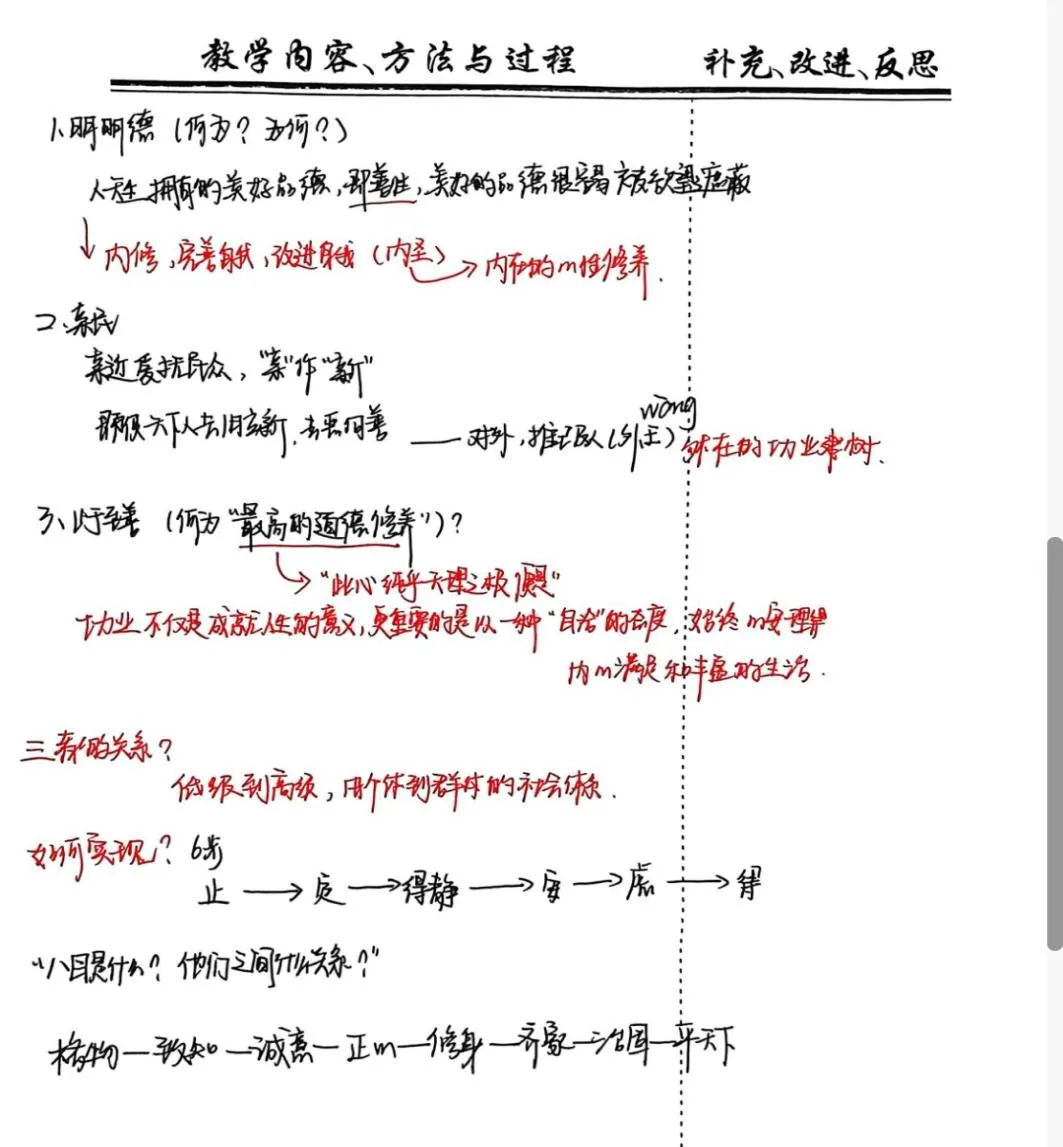 教学内容、方法与过程 补充、改进、反思
1、明明德（何为？为何？）
人天生拥有的美好品德，即善性，美好的品德很容易被欲望遮蔽
内修，完善自我，改进自我（内圣） 内在的心性修养.
2、亲民
亲近爱抚民众，“亲”作“新”
wàng
即使天下人去旧立新，去恶向善 —— 对外，推己及人（外王） 外在的功业建树.
3、止于至善（何为“最高的道德修养”）？
“此心纯乎天理之极便是”
功业不仅是成就人生的意义，更重要的是以一种“自洽”的态度，始终心安理得
内心满足和丰盈的生活.
三者的关系？
低级到高级，由个体到群体的社会体系.
如何实现？6步
止 → 定 → 得静 → 安 → 虑 → 得
“八目是什么？他们之间什么关系？”
格物—致知—诚意—正心—修身—齐家—治国—平天下